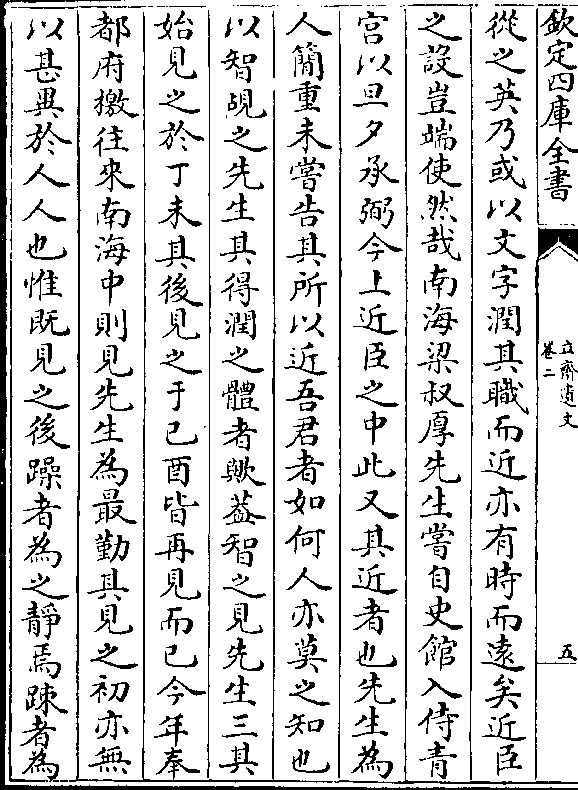 欽定四庫全書
立齋遺文
卷二
五
從之英乃或以文字潤其職而近亦有時而遠矣近臣
之設豈端使然哉南海梁叔厚先生嘗自史館入侍青
宮以旦夕承弼今上近臣之中此又其近者也先生為
人簡重未嘗告其所以近吾君者如何人亦莫之知也
以智覘之先生其得潤之體者歟葢智之見先生三其
始見之於丁未其後見之于己酉皆再見而已今年奉
都府檄往來南海中則見先生為最勤其見之初亦無
以甚異於人人也惟既見之後躁者為之靜焉踈者為